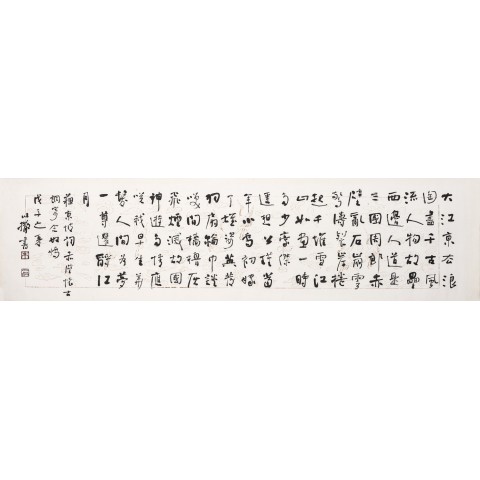 大江東去浪
淘盡千古風
流人物故壘
西邊人道是
三國周郎赤
壁亂石崩雲
驚濤裂岸捲
起千堆雪江
山如畫一時
多少豪傑
遙想公瑾當
年小喬初嫁
了雄姿英發
羽扇綸巾談
笑間檣櫓灰
飛煙滅故國
神遊多情應
笑我早生華
髮人間如夢
一尊還酹江
月
蘇東坡詞赤壁懷古
調寄念奴嬌
戊子之春
書